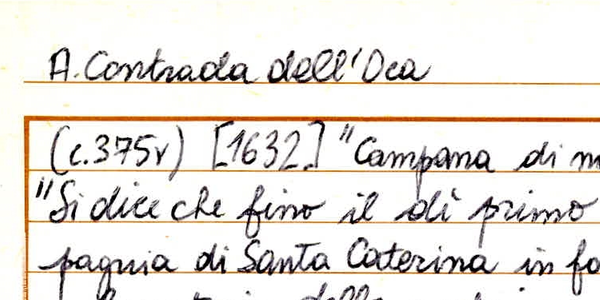 A. Contrada dell'Oca
(c.375v) [1632.] "Campana di m
"Si dice che fino il dì primo
pagnia di Santa Caterina in fo